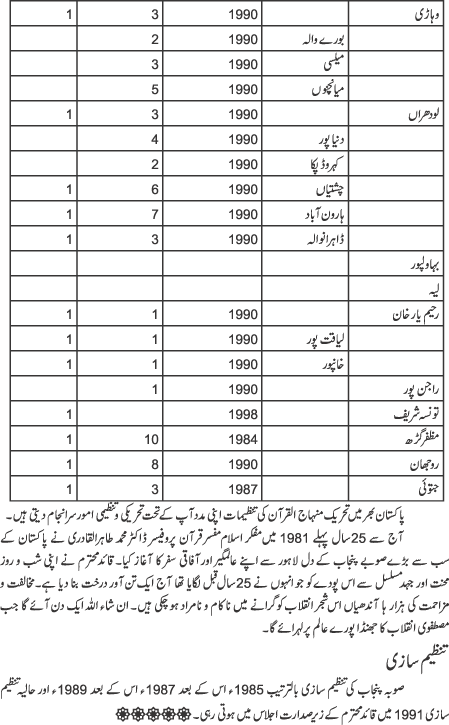 وہاڑی 1990 3 1
بورے والہ 1990 2
میلسی 1990 3
میانچوں 1990 5
لودھراں 1990 3 1
دنیا پور 1990 4
کہروڈپکا 1990 2
چشتیاں 1990 6 1
ہارون آباد 1990 7 1
ڈاہرانوالہ 1990 3 1
بہاولپور
لیہ
رحیم یار خان 1990 1 1
لیاقت پور 1990 1 1
خانپور 1990 1 1
راجن پور 1990 1
تونسہ شریف 1998 1
مظفر گڑھ 1984 10 1
روجھان 1990 8 1
جتوئی 1987 3 1
پاکستان بھر میں تحریک منہاج القرآن کی تنظیمات اپنی مدد آپ کے تحت تحریکی و تنظیمی امور سرانجام دیتی ہیں۔
آج سے 25 سال پہلے 1981 میں مفکر اسلام مفسر قرآن پروفیسر ڈاکٹر محمد طاہر القادری نے پاکستان کے
سب سے بڑے صوبے پنجاب کے دل لاہور سے اپنے عالمگیر اور آفاقی سفر کا آغاز کیا۔ قائد محترم نے اپنی شب و روز
محنت اور جہد مسلسل سے اس پودے کو جو انہوں نے 25 سال قبل لگایا تھا آج ایک تن آور درخت بنا دیا ہے۔ مخالفت و
مزاحمت کی ہزار ہا آندھیاں اس شجر انقلاب کو گرانے میں ناکام و نامراد ہو چکی ہیں۔ ان شاء اللہ ایک دن آئے گا جب
مصطفوی انقلاب کا جھنڈا پورے عالم پر لہرائے گا۔
تنظیم سازی
صوبہ پنجاب کی تنظیم سازی بالترتیب 1985ء اس کے بعد 1987ء اس کے بعد 1989ء اور حالیہ تنظیم
سازی 1991 میں قائد محترم کے زیر صدارت اجلاس میں ہوتی رہی۔